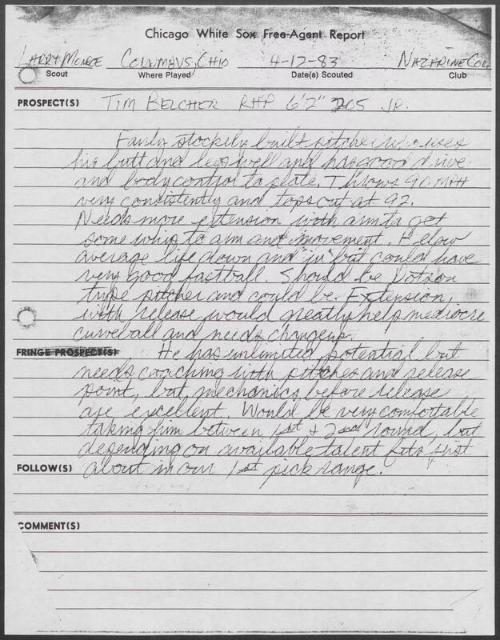 Chicago White Sox Free-Agent Report
Larry Monroe Columbus, Ohio 4-12-83 Nazarine Col.
Scout Where Played Date(s) Scouted Club
PROSPECT(S) Tim Belcher RHP 6'2" 205 Jr.
Fairly stockily built pitcher who uses
his butt and legs well and has good drive
and body control to plate. Throws 90 MPH
very consistently and tops out at 92.
Needs more extension with arm to get
some whip to arm and movement. Below
average life down and "in" but could have
very good fastball. Should be
type pitcher and could be. Extension,
with release would greatly help mediocre
curveball and needs changeup.
FRINGE PROSPECT(S) He has unlimited potential but
needs coaching with pitches and release
point, but mechanics before release
are excellent. Would be very comfortable
taking him between 1st + 2nd round, but
depending on available talent fits just
FOLLOW(S) about in our 1st pick range.
COMMENT(S)